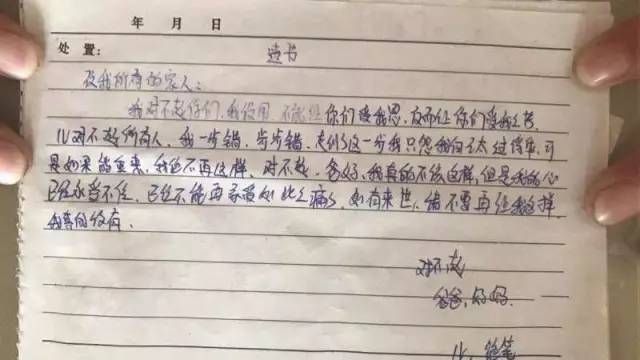 年 月 日
处 置: 遗书
及我所有的家人:
我对不起你们,我没用,不能让你们享我恩,反而让你们受我之苦。
儿对不起所有人,我一步错,步步错,走到了这一步我只怨我自己太过信事,可
是如果能重来,我绝不再这样,对不起,爸妈,我真的不该这样,但是我的心
已经承当不住,已经不能再承受如此之痛了,如有来世,请不要再让我这样
对不起
爸爸,妈妈
儿,绝笔